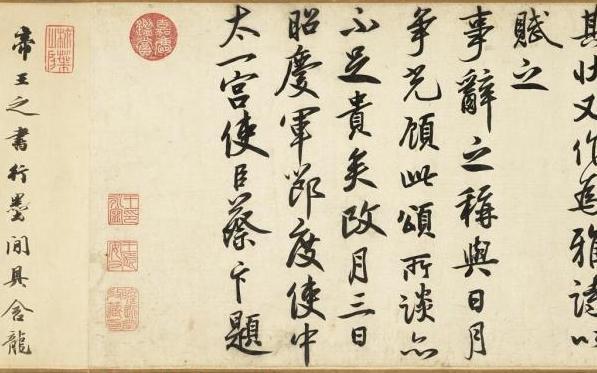 其壯又作為雅詩
賦之
事辭之稱與日月
爭光顧此頌所談亦
不足貴矣政月三日
昭慶軍節度使中
太一宮使臣蔡卞題
嘉慶鑑賞
帝王之書行墨間具含龍